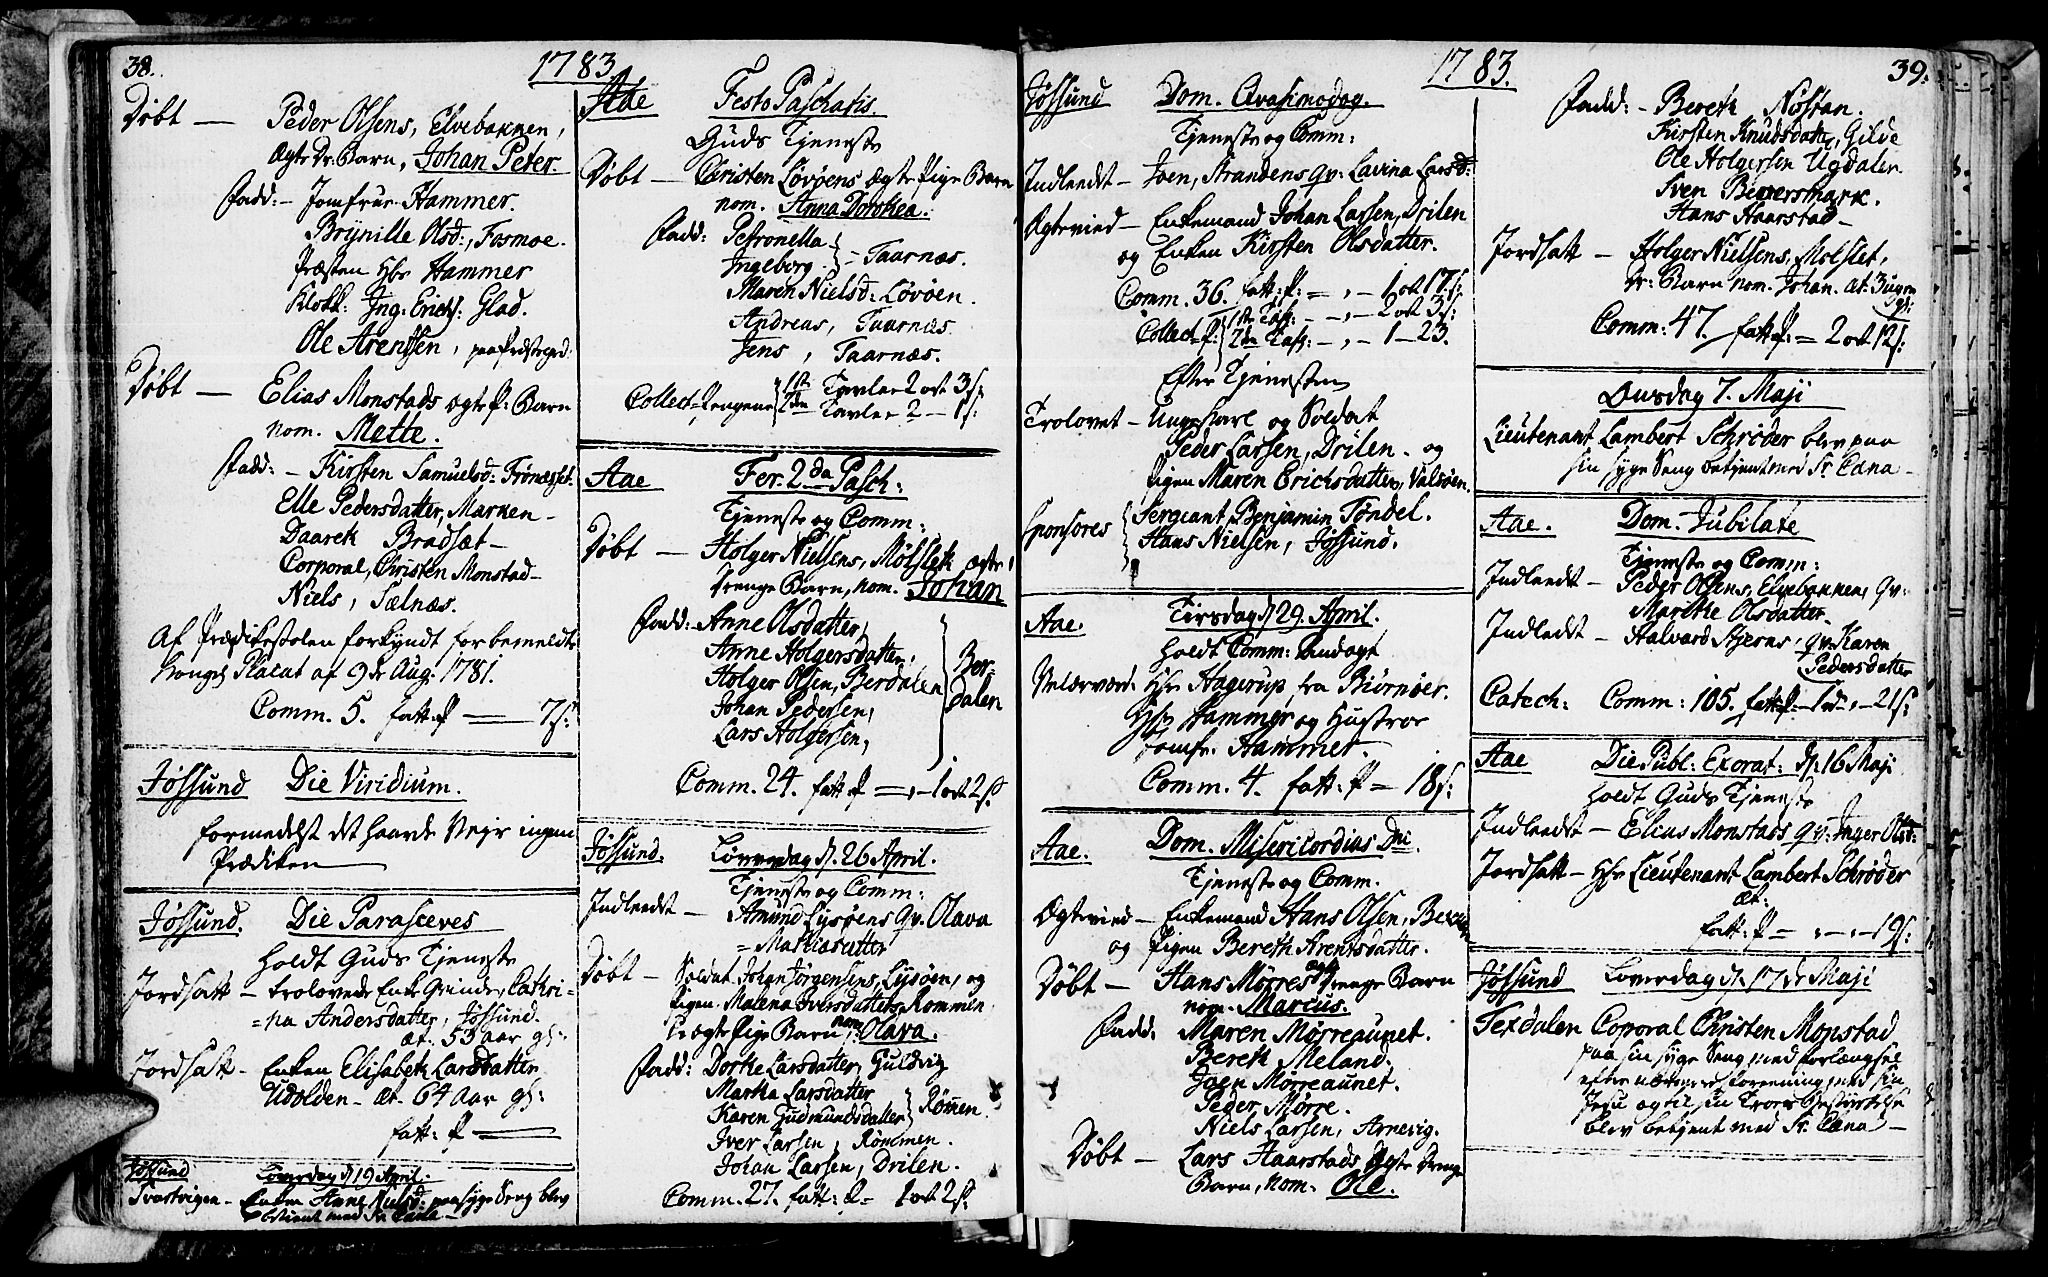 38.
1783
Døbt — Peder Olsens, Elvebakken,
Ægte Dr. Barn, Johan Peter.
Fadd: - Jomfrue Hammer.
Brynille Olsd:, Fosmoe.
Præsten Hr Hammer
Klokk: Ing. Erichs: Glad.
Ole Arentsen, paa Præstegrd:
Døbt — Elias Monstads ægte P: Barn
nom. Mette.
Fadd: - Kirsten Samuelsd: Frønesset.
Elle Pedersdatter, Marken -
Daareth Bradsæt -
Corporal, Christen Monstad -
Niels, Sælnæs.
Af Prædikestolen forkyndt for bemeldte
Konges Placat af 9de Aug: 1781.
Comm. 5. fatt: P — 7 s:
Jøssund Die Viridium.
formedelst det haarde Vejr ingen
Prædiken
Jøssund. Die Parasceves
holdt Guds Tjeneste
Jordsatt - trolovede Enke Cathri-
=na Andersdatter, Jøssund.
æt. 53 aar gl:
Jordsatt - Enken Elisabeth Larsdatter
Udolden - æt. 64 Aar gl:
fatt: P —
Jøssund Løverdag d. 19 April.
Tvertvigen - Enken Anne Nielsd: paa syge Seng blev
betient med Sr. Cæna -
Aae Festo Paschatis.
Guds Tjeneste
Døbt — Christen Løvøens ægte Pige Barn
nom. Anna Dorothea.
Fadd: Petronella
Ingeborg } - Taarnæs.
Maren Nielsd: Løvøen.
Andreas, Taarnæs
Jens, Taarnæs.
Collect-Pengene { 1ste Tavler 2 ort 3 s:
2den Tavler 2 — 1 s:
Aae Fer. 2da Pasch:
Tjeneste og Comm:
Døbt — Holger Nielsens, Mølsleth ægte
Drenge Barn, nom. Johan
Fadd: - Anne Olsdatter,
Anne Holgersdatter,
Holger Olsen, Berdalen
Johan Pedersen,
Lars Holgersen, } Ber-
dalen
Comm. 24. fatt: P — 1 ort 2 s:
Jøssund. Løverdag d. 26 April.
Tjeneste og Comm:
Indleedt - Amund Lysøens Qv. Olava
= Mathiasdatter
Døbt - Soldat Johan Jørgensens, Lysøen, og
Pigen Malena Iversdatters, Rommen
Uægte Pige Barn nom. Olava.
Fadd: Dorthe Larsdatter, Guldvig
Martha Larsdatter
Karen Gudmundsdatter } Rømen.
Iver Larsen, Rømmen.
Johan Larsen, Drilen.
Comm. 27. fatt: P - 1 ort 2 s:
1783.
39.
Jøssund Dom. Qvasimodog.
Tjeneste og Comm:
Indleedt - Joen, Strandens Qv: Lavina Larsd:
Ægtevied - Enkemand Johan Lassen, Drilen
og Enken Kirsten Olsdatter.
Comm. 36. fatt: P: — 1 ort 17 s:
Collect-P: { 1ste Tafl: — 2 ort 3 s:
2den Tafl: — 1 — 23.
Efter Tjenesten
Trolovet - Ungekarl og Soldat
Peder Larsen, Drilen. og
Pigen Maren Erichsdatter, Valsøen.
Sponsores { Sergeant Benjamin Tøndel.
Hans Nielsen, Jøssund.
Aae. Tirsdag d. 29. April.
holdt Comm: Andagt
Velærværd. Hr Hagerup, fra Biørnør.
Hr Hammer og Hustroe
Jomfr. Hammer.
Comm. 4. fatt: P — 18 s:
Aae. Dom. Misericordias Dni.
Tjeneste og Comm.
Ægtevied - Enkemand Hans Olsen,
og Pigen Bereth Arentsdatter.
Døbt - Hans Mørres ægte Drenge Barn
nom. Marcus.
Fadd: Maren Mørreaunet.
Bereth Meland.
Joen Mørreaunet.
Peder Mørre.
Niels Larsen, Arnevig.
Døbt - Lars Haarstads ægte Drenge
Barn, nom. Ole.
Fadd: - Bereth Nøstan.
Kirsten Knudsdatter, Gilde
Ole Holgersen Ugdalen
Sven Bewersmark.
Hans Haarstad -
Jordsatt - Holger Nielsens, Mølslet,
Dr: Barn nom. Johan. æt: 3 ugers
gl:
Comm: 47. fatt P: — 2 ort 12 s:
Onsdag 7. Maji
Lieutenant Lambert Schrøder blev paa
sin syge Seng betjent med Sr. Cæna -
Aae. Dom. Jubilate
Tjeneste og Comm:
Indleedt - Peder Olsens, Elvebakken, Qv:
Marithe Olsdatter
Indleedt - Halvard Stjerns, Qv: Karen
Pedersdatter
Catech: Comm: 105. fatt: P - 1 — 21 s:
Aae Die Publ: Exorat: d. 16 Maji
holdt Guds Tjeneste
Indleedt - Elias Monstads Qv: Inger Olsd:
Jordsatt - Hr Lieutenant Lambert Schrøder
æt:
fatt: P — 19 s:
Jøssund Løverdag d. 17de Maji
Terdalen Coporal Christen Monstad
paa sin syge Seng med forlængsel
efter nærmere forening med sin
Jesu og til sin Troes Bestyrkelse
blev betjent med Sr. Cæna -